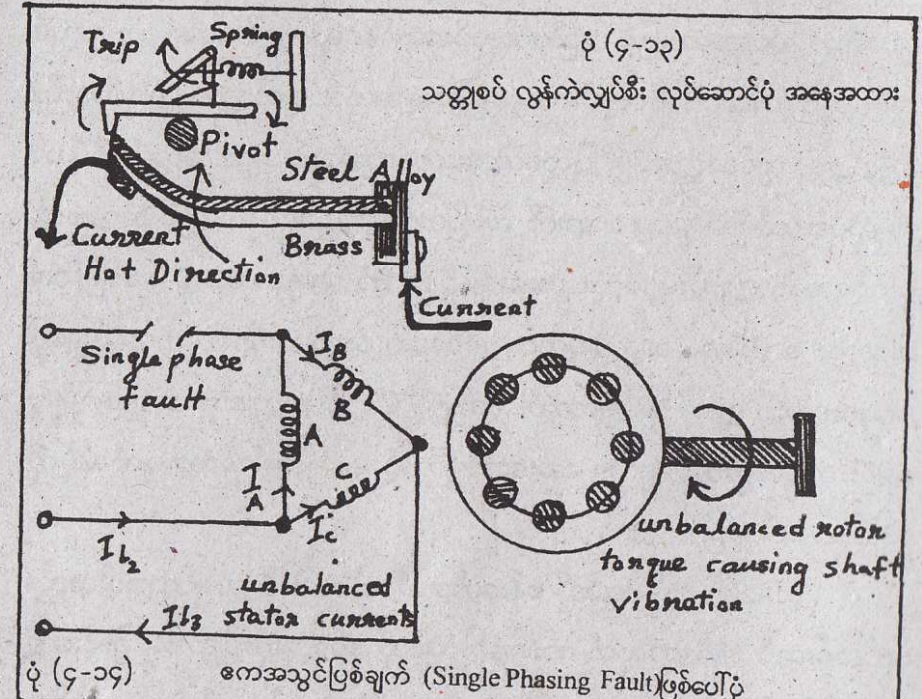 ပုံ (၄-၁၃)
သတ္တုစပ် လွန်ကဲလျှပ်စီး လုပ်ဆောင်ပုံ အနေအထား
Trip
Spring
Pivot
Steel Alloy
Brass
Current
Hot Direction
Current
Single phase
fault
I_B
B
A
I_A
C
I_c
I_L2
unbalanced
stator currents
I_L3
unbalanced rotor
torque causing shaft
vibration
ပုံ (၄-၁၄)
ဧကအသွင်ပြစ်ချက် (Single Phasing Fault)ဖြစ်ပေါ်ပုံ